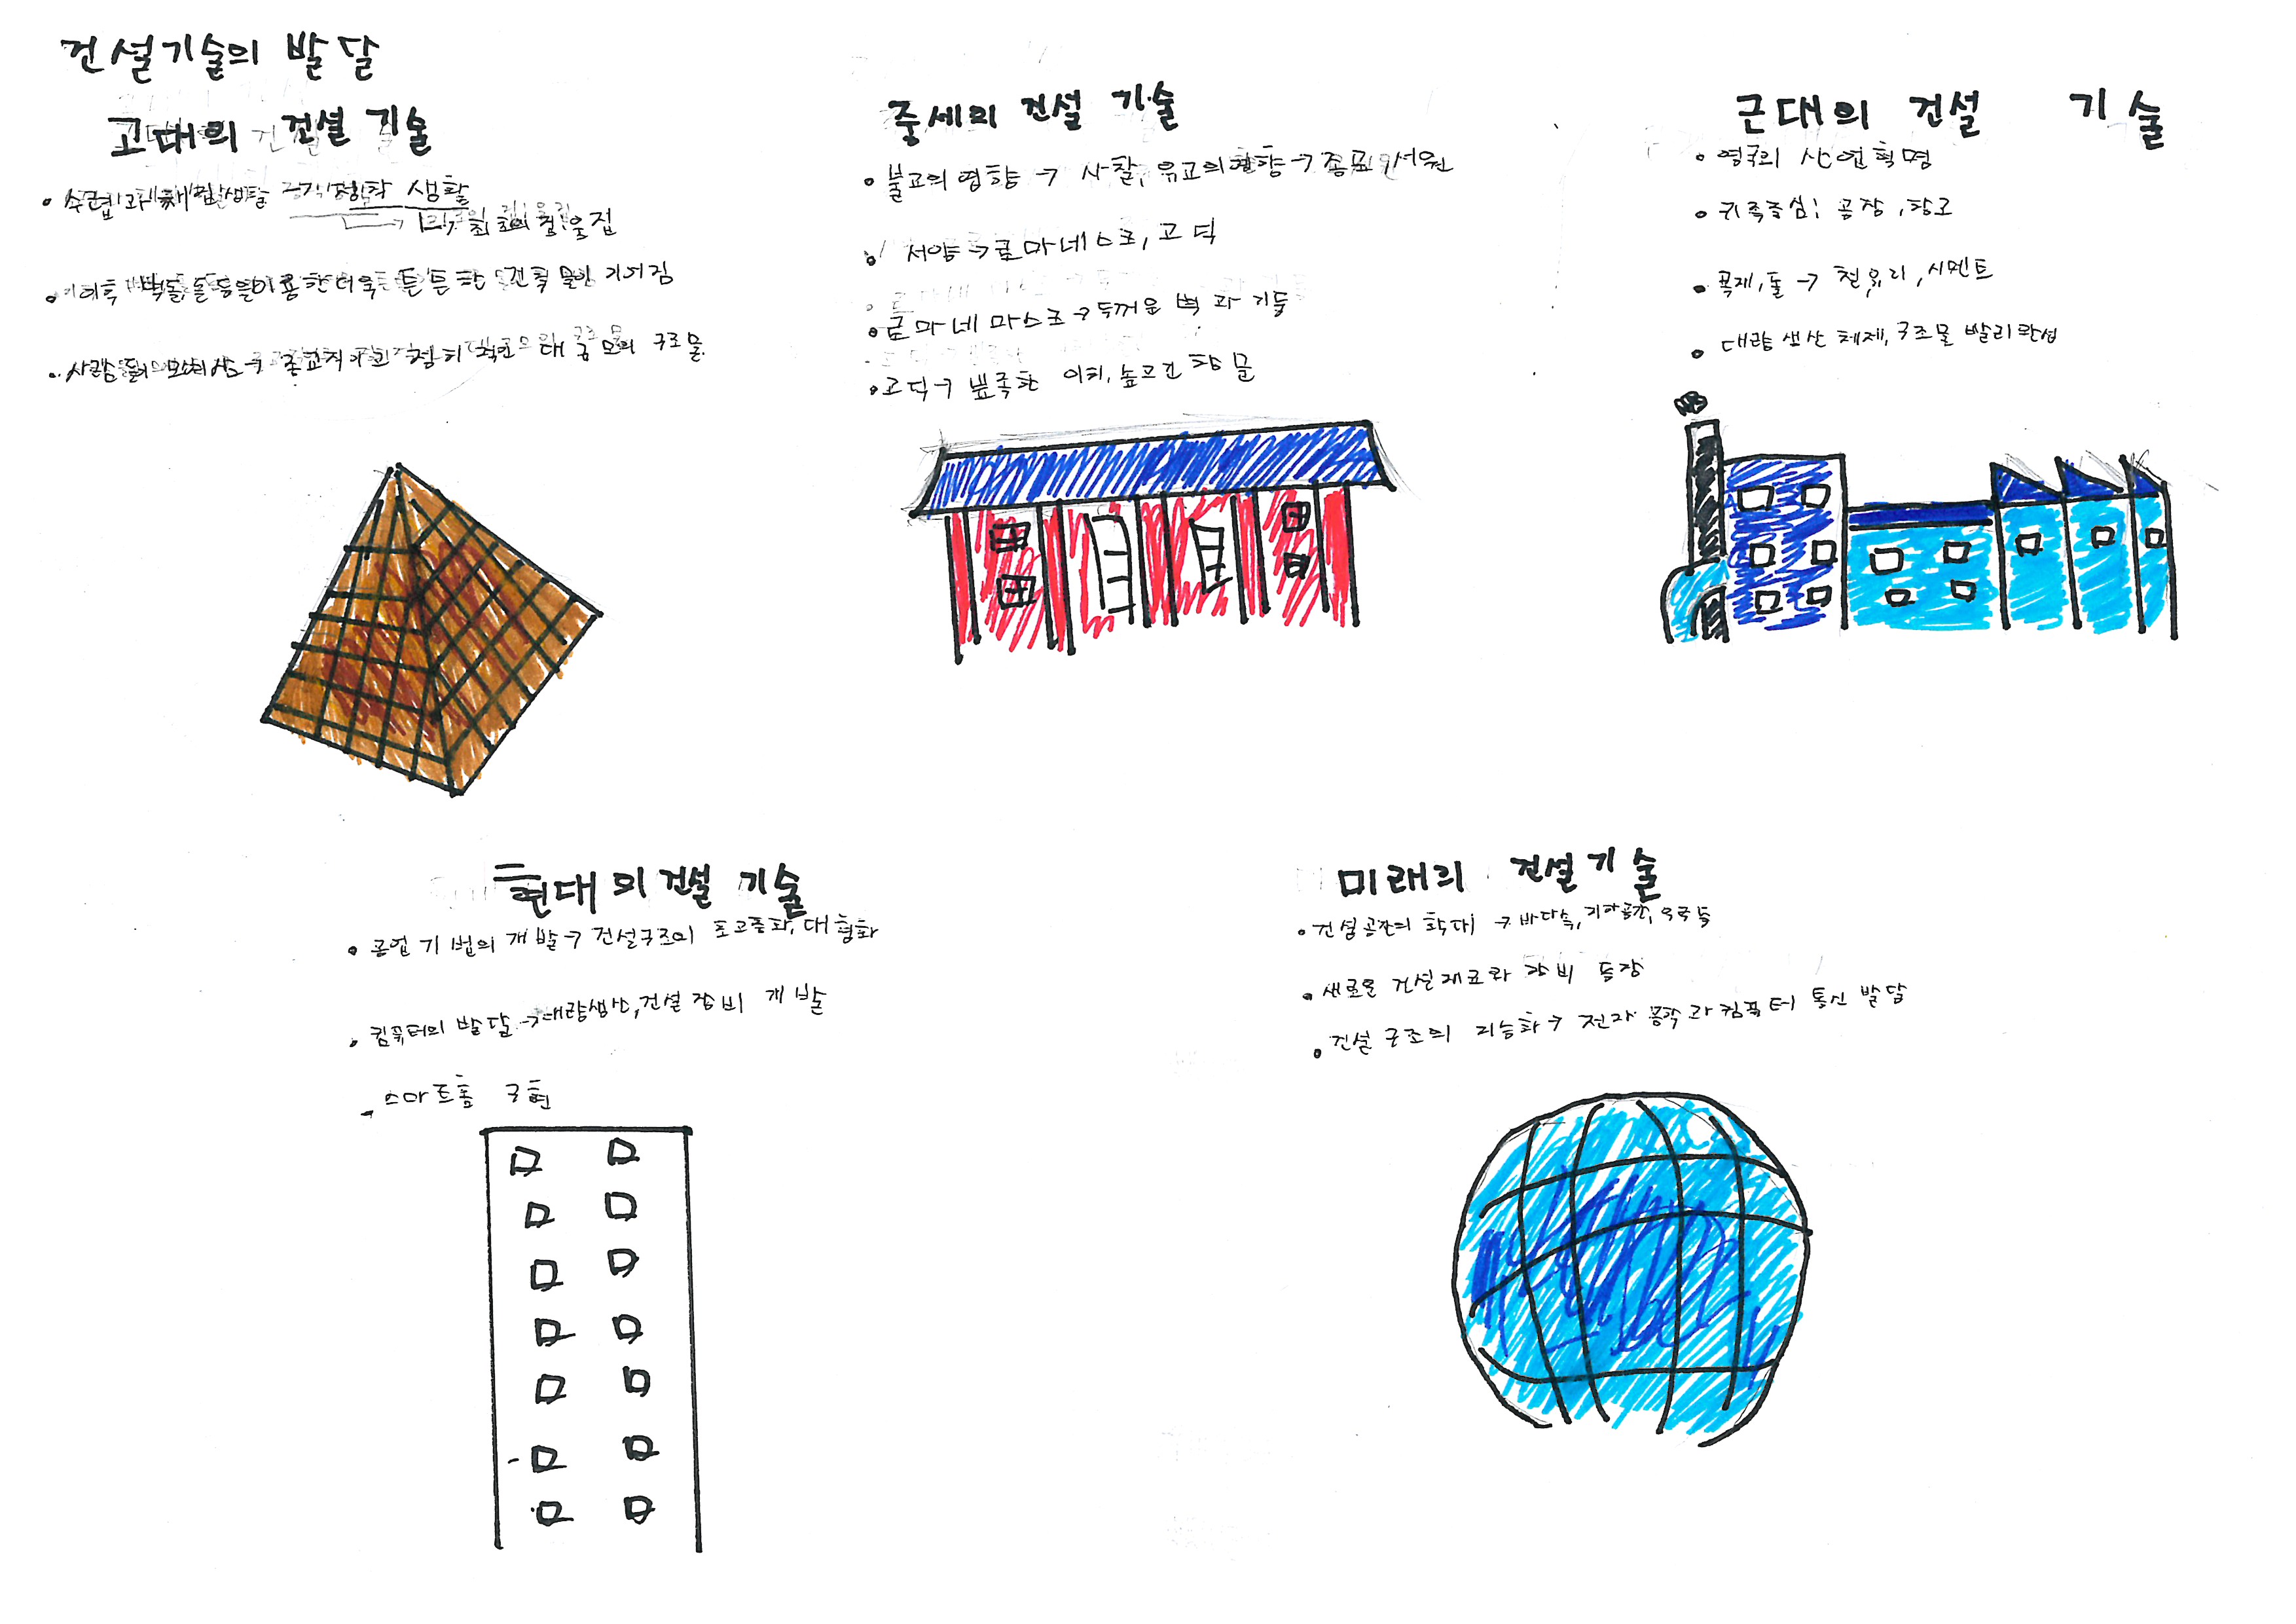 건설기술의 발달
고대의 건설 기술
수렵과 채집생활 정착 생활
최초의 움집
이후 벽돌, 돌 등을 이용한 더욱 튼튼한 건축물이 지어짐
사람들의 종교적 대규모의 구조물
중세의 건설 기술
불교의 영향 → 사찰, 유교의 영향 → 종묘, 서원
서양 → 로마네스크, 고딕
로마네마스크 → 두꺼운 벽과 기둥
고딕 → 뾰족한 아치, 높고 긴 창문
근대의 건설 기술
영국의 산업혁명
귀족중심: 공장, 창고
목재, 돌 → 철, 유리, 시멘트
대량 생산 체제, 구조물 발리 완성
현대의 건설 기술
공업 기법의 개발 → 건설구조의 초고층화, 대형화
컴퓨터의 발달 → 대량생산, 건설 장비 개발
스마트홈 구현
미래의 건설기술
건설공간의 확대 → 바다속, 지하공간, 우주 등
새로운 건설재료와 장비 등장
건설 구조의 지능화 → 전자 공학과 컴퓨터 통신 발달